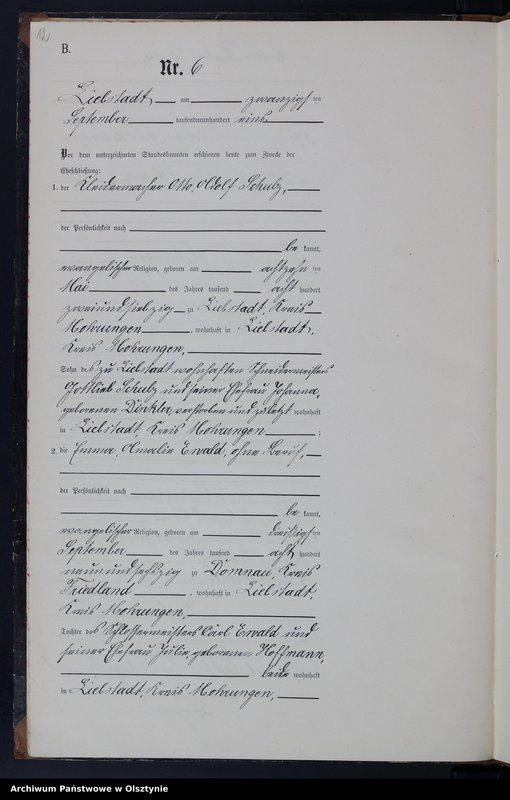 12
B.
Nr. 6
Liebstadt, am zwanzigsten
September tausendneunhundert eins
Vor dem unterzeichneten Standesbeamten erschienen heute zum Zwecke der
Eheschließung:
1. der Kleidermacher Otto, Adolf Schulz,
der Persönlichkeit nach
be kannt,
evangelischer Religion, geboren am achtzehn ten
Mai des Jahres tausend acht hundert
zweiundsiebzig zu Liebstadt, Kreis
Mohrungen, wohnhaft in Liebstadt,
Kreis Mohrungen,
Sohn des zu Liebstadt wohnhaften Schneidermeisters
Gottlieb Schulz und seiner Ehefrau Johanna,
geborenen Dinkler, verstorben und zuletzt wohnhaft
in Liebstadt Kreis Mohrungen ;
2. die Emma, Amalie Ewald, ohne Beruf,
der Persönlichkeit nach
be kannt,
evangelischer Religion, geboren am dreißigsten
September des Jahres tausend acht hundert
neunundsechzig zu Domnau, Kreis
Friedland, wohnhaft in Liebstadt,
Kreis Mohrungen,
Tochter des Schlossermeisters Carl Ewald und
seiner Ehefrau Julie, geborenen Hoffmann,
beide wohnhaft
in Liebstadt, Kreis Mohrungen,
Archiwum Państwowe w Olsztynie